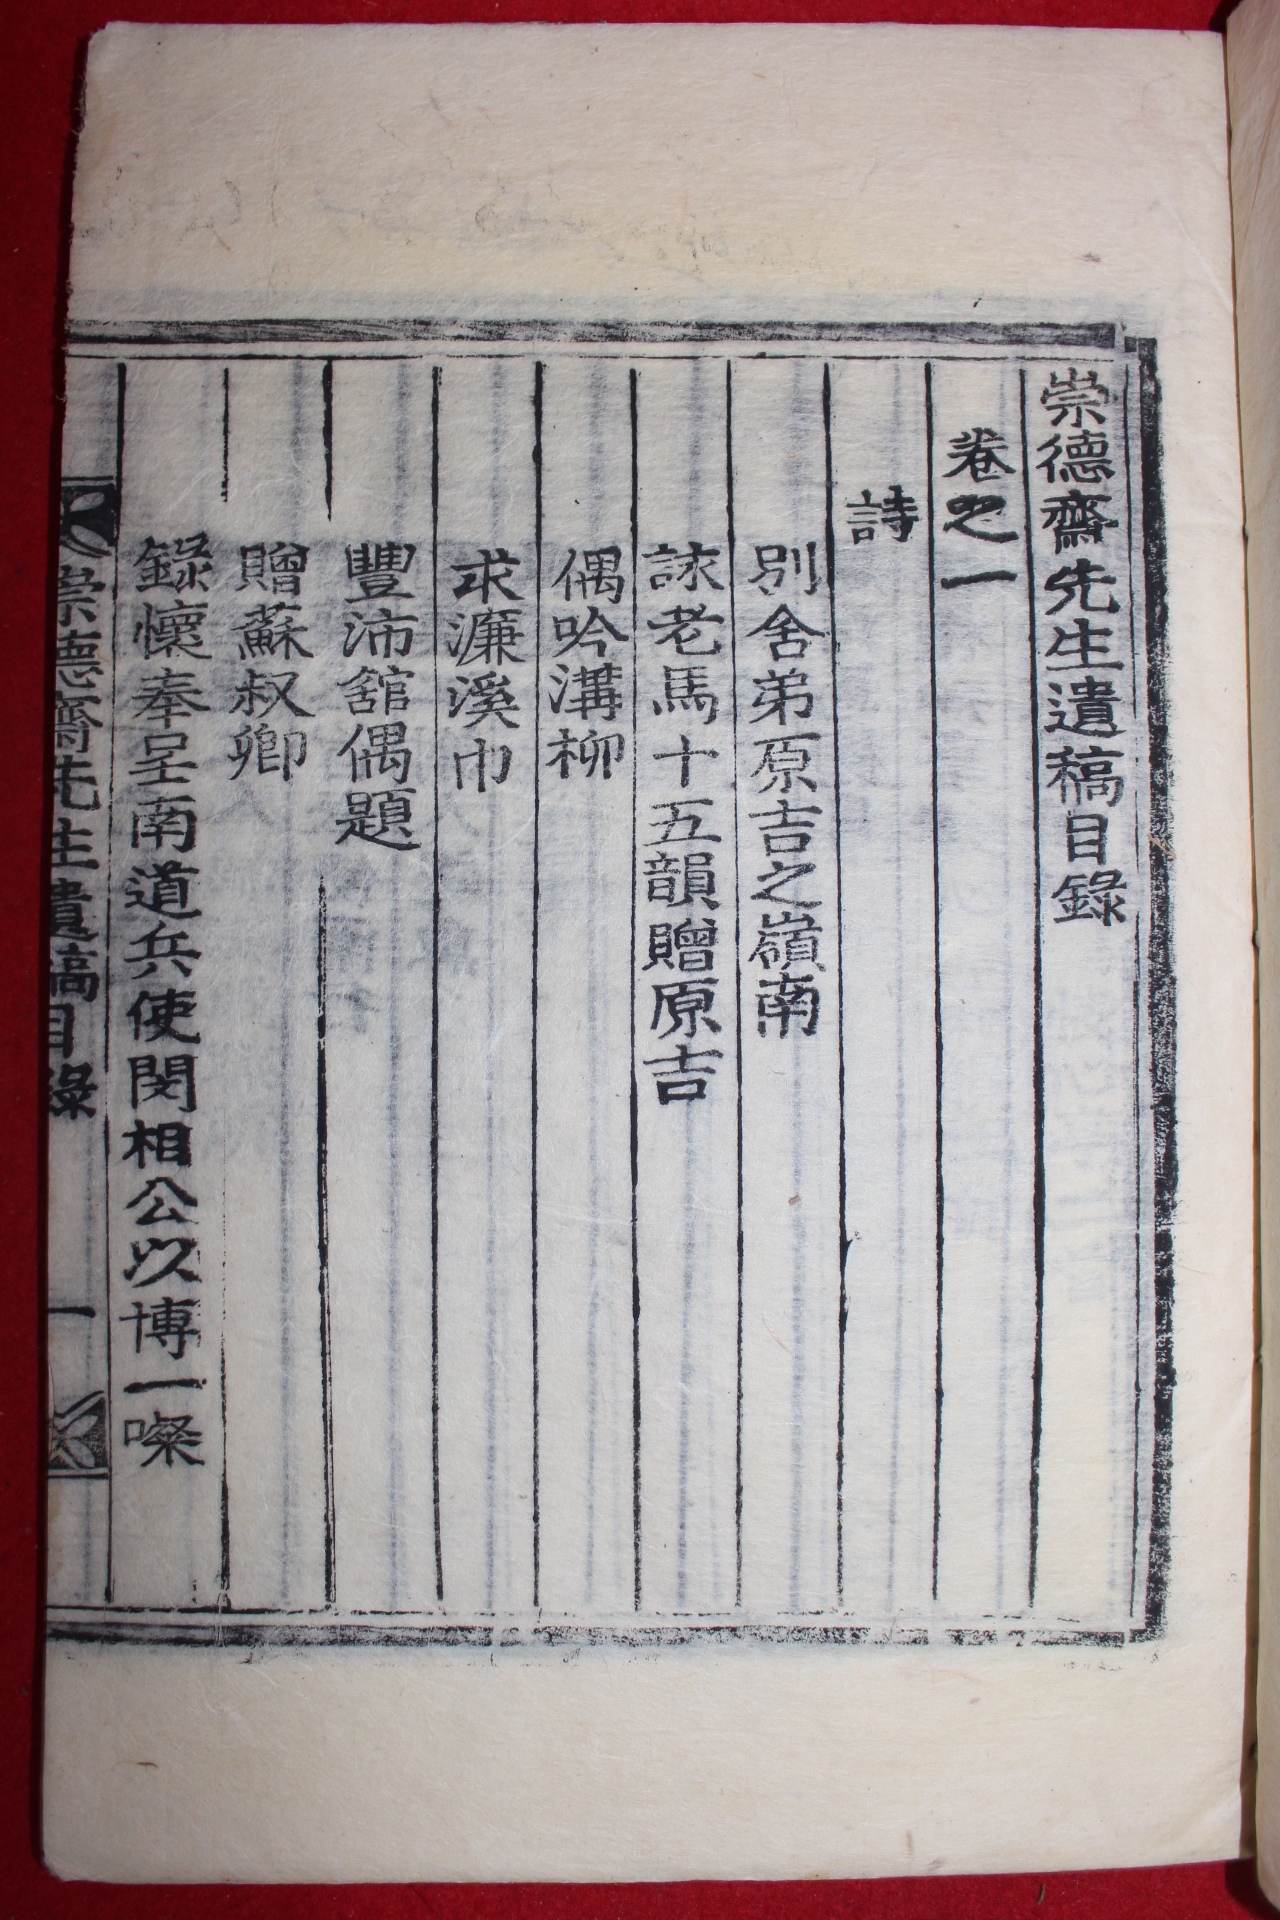 崇德齋先生遺稿目錄
卷之一
詩
別舍弟原吉之嶺南
詠老馬十五韻贈原吉
偶吟溝柳
求濂溪巾
豐沛舘偶題
贈蘇叔卿
錄懷奉呈南道兵使閔相公以博一噱
崇德齋先生遺稿目錄
一